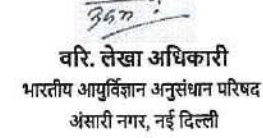 वरि. लेखा अधिकारी
भारतीय आयुर्विज्ञान अनुसंधान परिषद
अंसारी नगर, नई दिल्ली